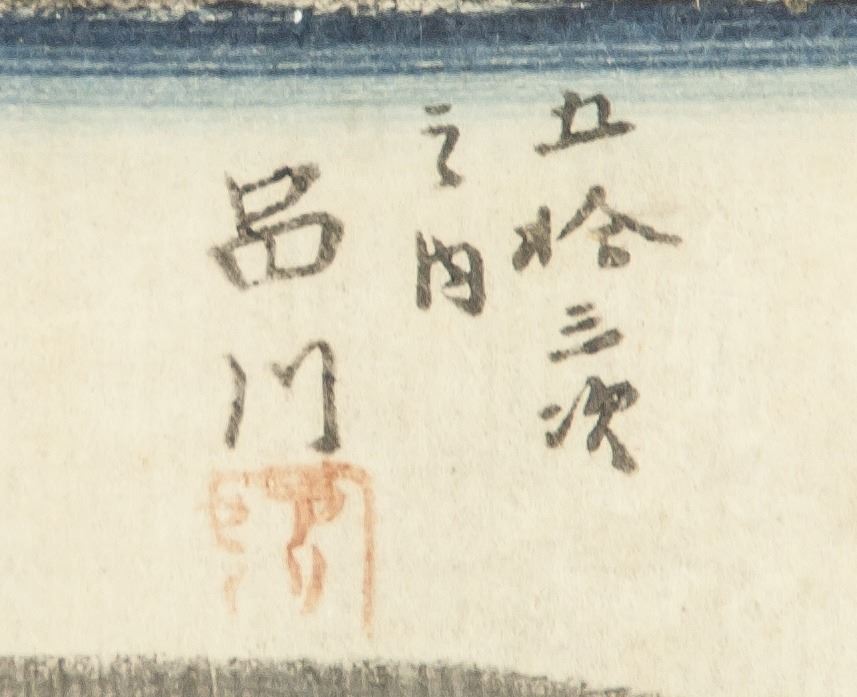 五拾三次
之内
品川